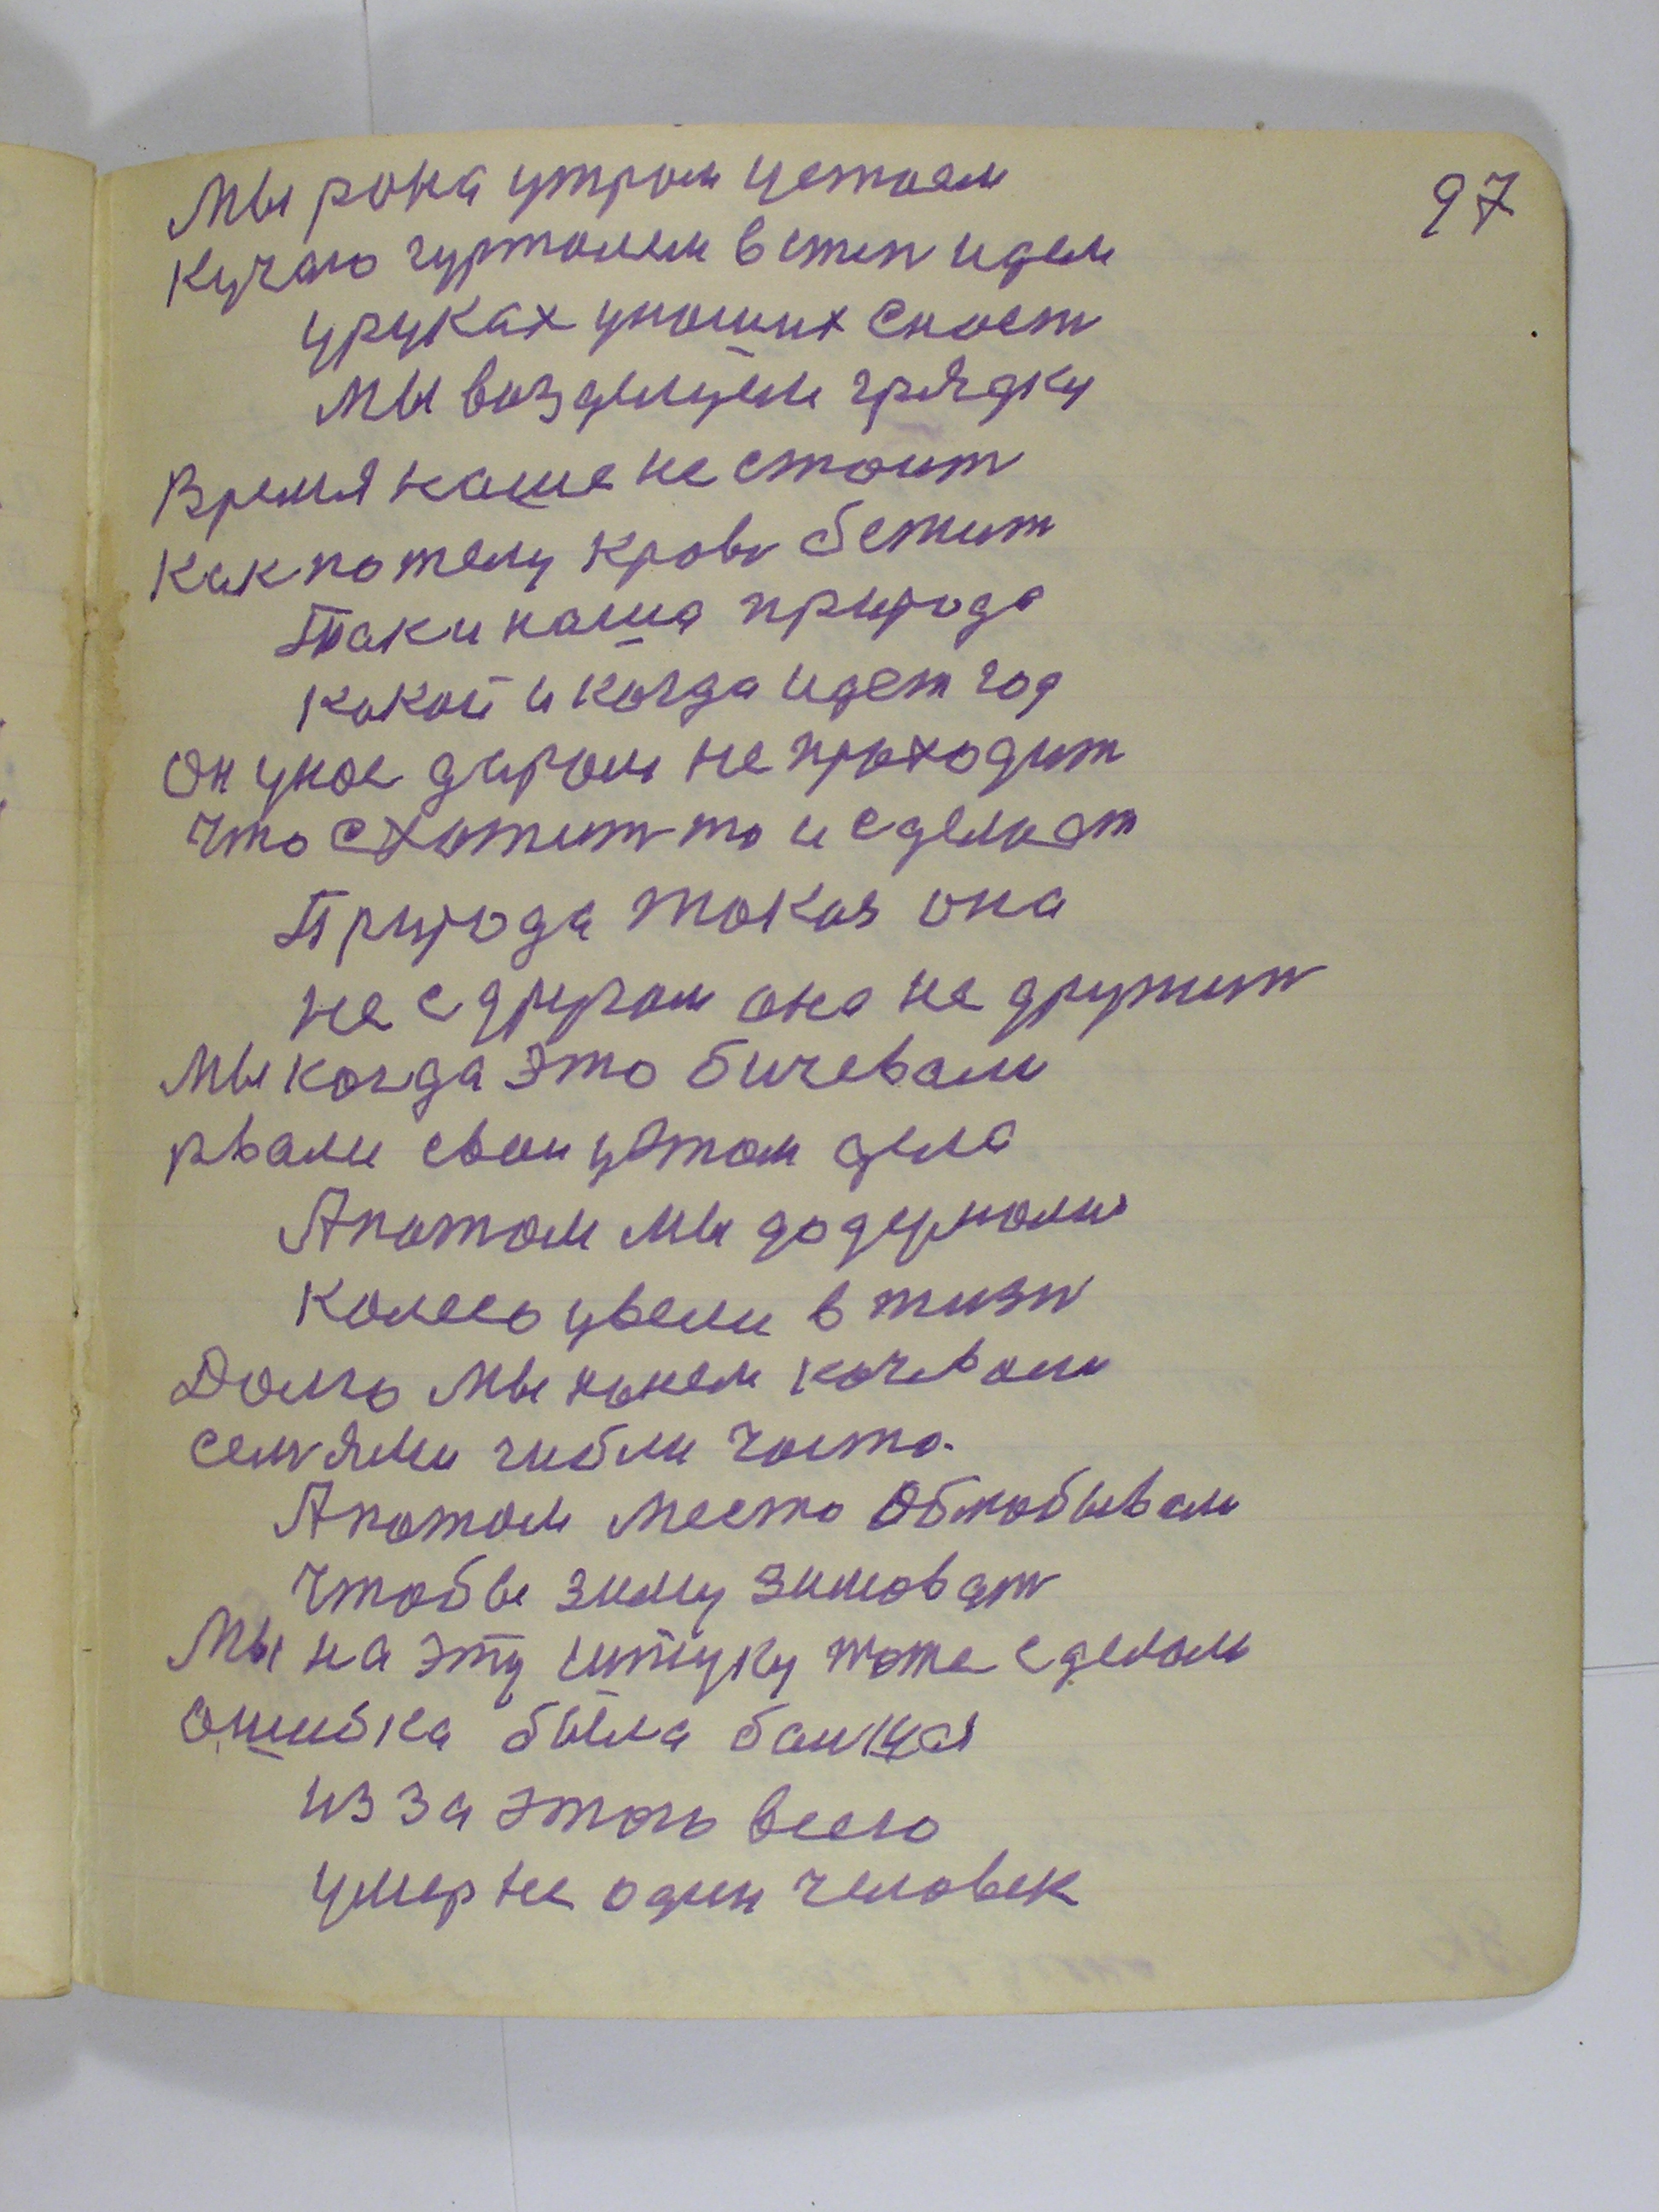 97
Мы рона утром устаем
Кучаю гуртомем в степ идем
уруках унаших снаст
Мы возделуем грядку
Время наше не стоит
Как по телу кровь бежит
Так и наша природа
какой и когда идет год
Он унас даром не проходит
что схотит то и сделает
Природа такая она
не с другом она не дружит
Мы когда это бичевали
рвали свои утом дела
А потом мы додумали
Колесо увели в жизн
Долго мы конем кочевали
семями гибли часто.
А потом место облюбывали
Чтобы зиму зимоват
Мы на эту штуку тоже сделали
ошибка была балшая
из за этого всего
умер не один человек